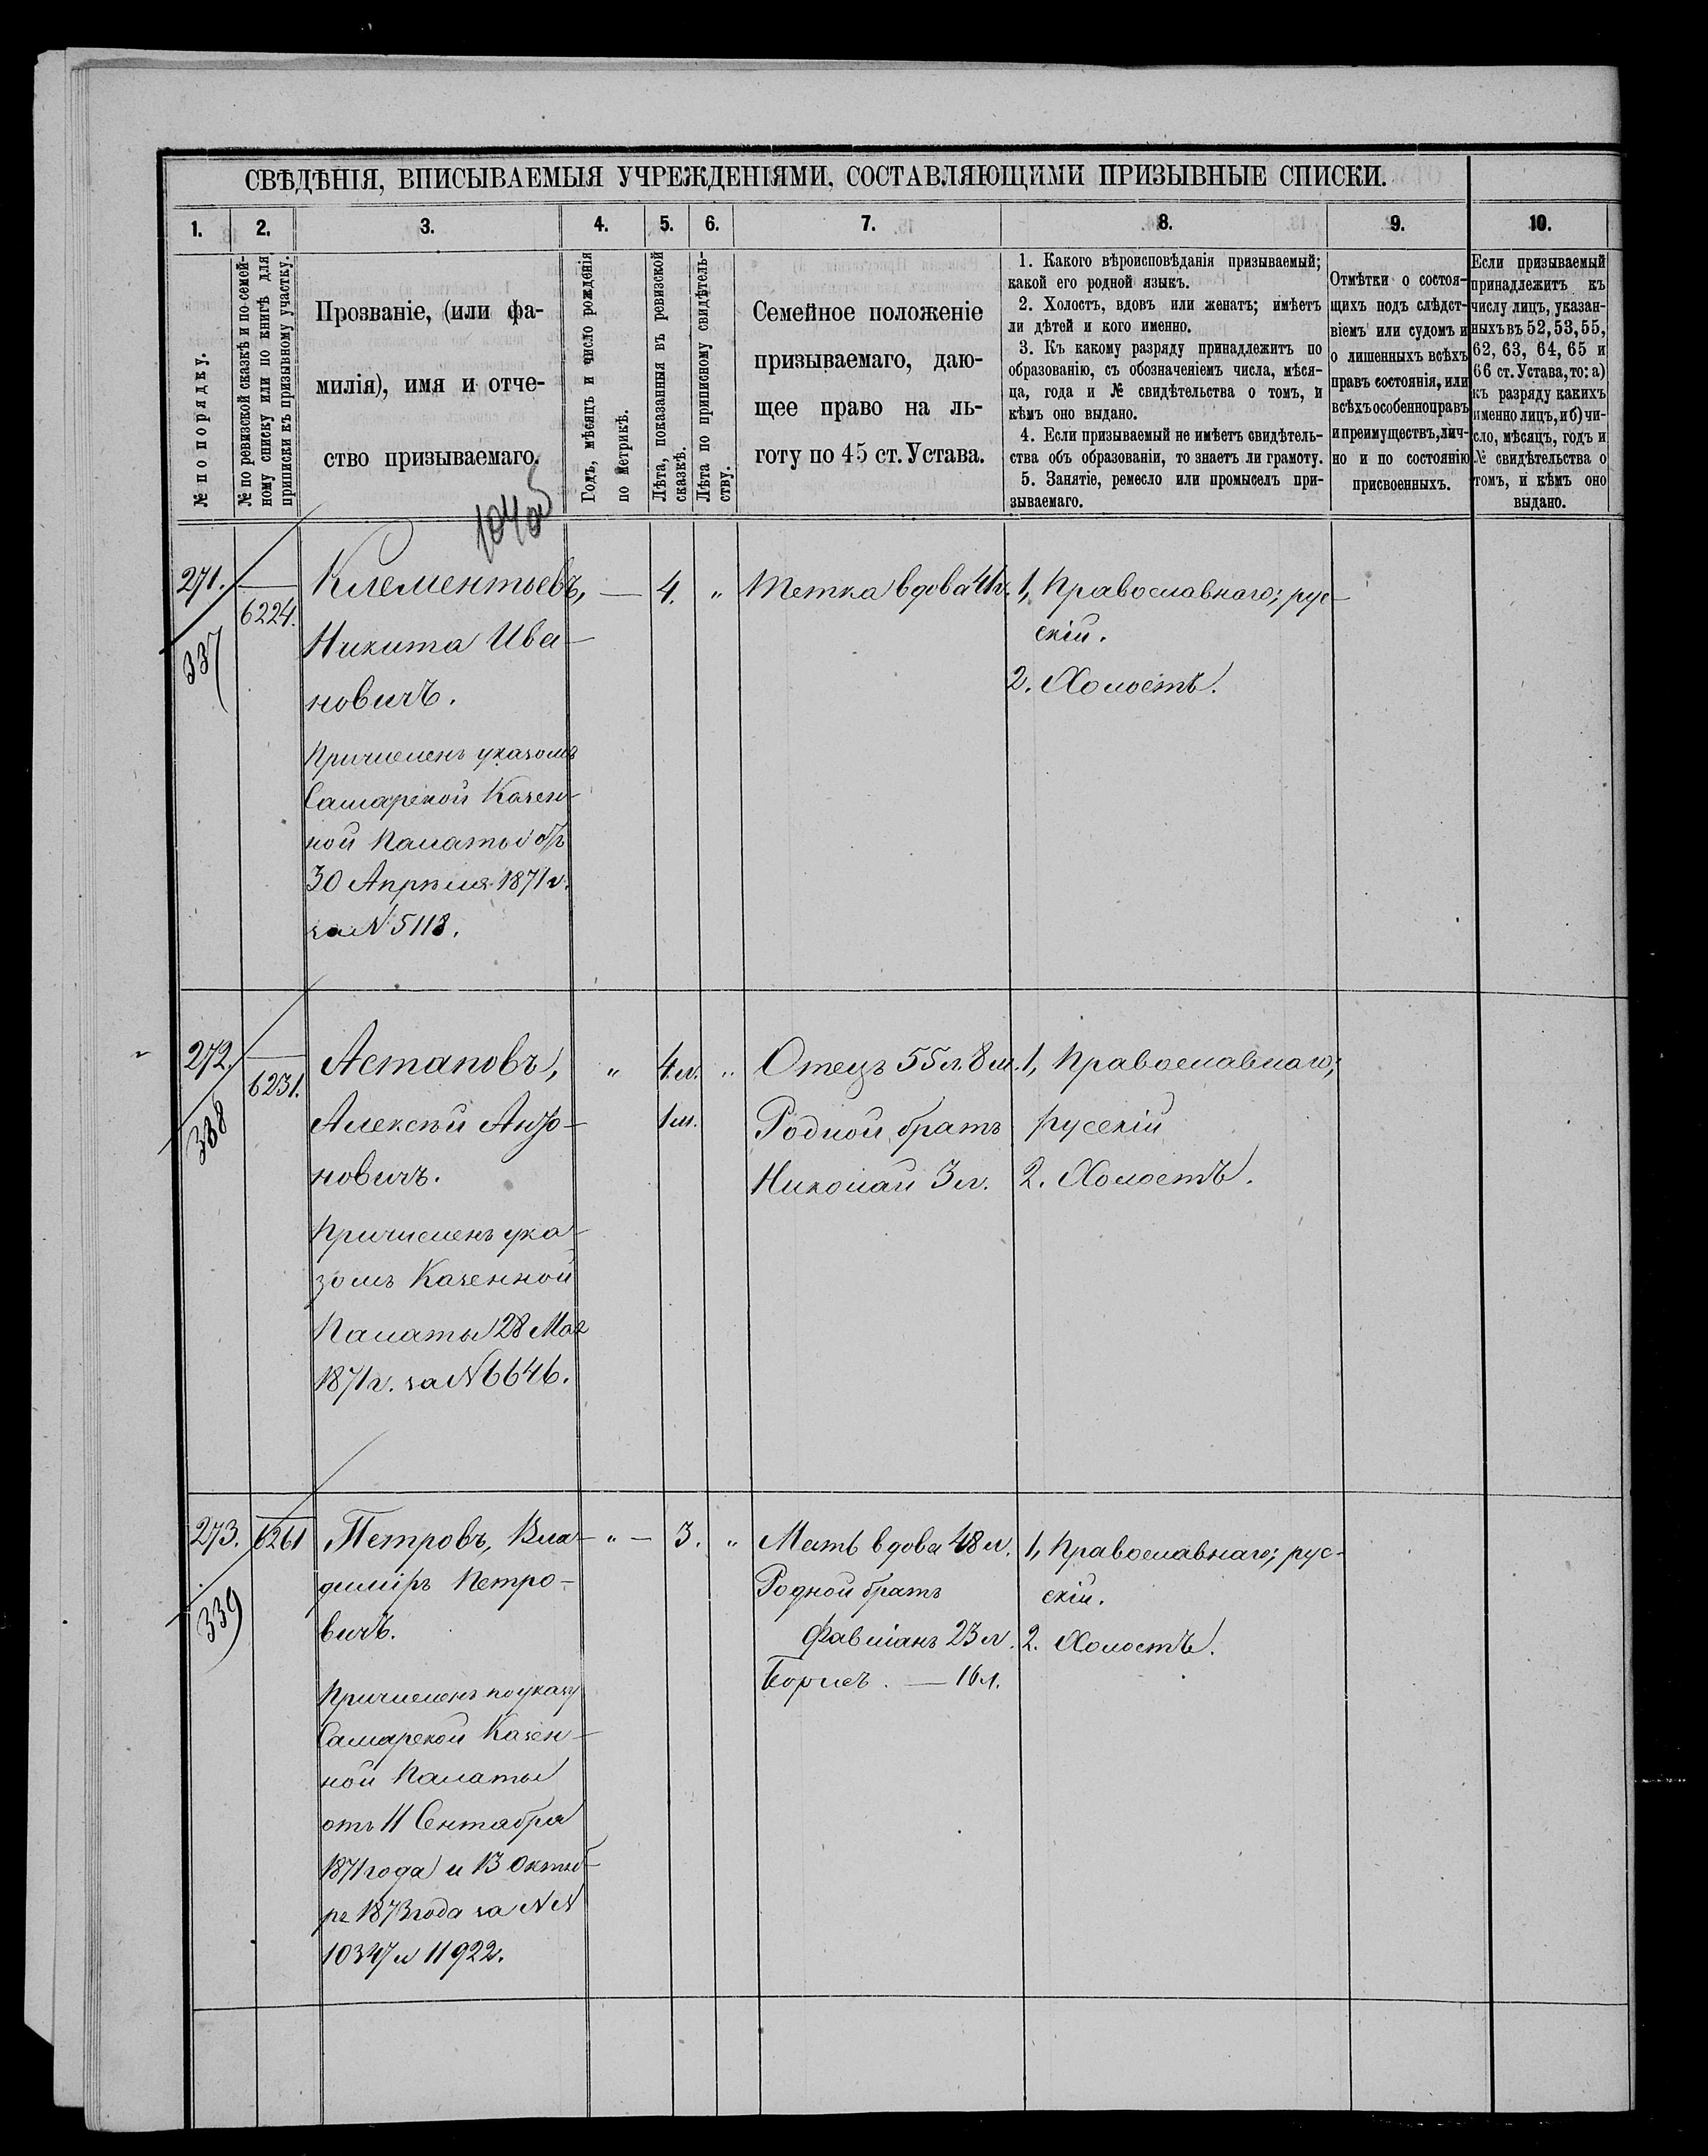 СВѢДѢНІЯ, ВПИСЫВАЕМЫЯ УЧРЕЖДЕНІЯМИ, СОСТАВЛЯЮЩИМИ ПРИЗЫВНЫЕ СПИСКИ.
1. 2. 3. 4. 5. 6. 7. 8. 9. 10.
№ по порядку.
№ по ревизской сказкѣ и по семей-
ному списку или по книгѣ для
приписки къ призывному участку.
Прозваніе, (или фа-
милія), имя и отче-
ство призываемаго.
Годъ, мѣсяцъ и число рожденія
по метрикѣ.
Лѣта, показанныя въ ревизской
сказкѣ.
Лѣта по приписному свидѣтель-
ству.
Семейное положеніе
призываемаго, даю-
щее право на ль-
готу по 45 ст. Устава.
1. Какого вѣроисповѣданія призываемый;
какой его родной языкъ.
2. Холостъ, вдовъ или женатъ; имѣетъ
ли дѣтей и кого именно.
3. Къ какому разряду принадлежитъ по
образованію, съ обозначеніемъ числа, мѣся-
ца, года и № свидѣтельства о томъ, и
кѣмъ оно выдано.
4. Если призываемый не имѣетъ свидѣтель-
ства объ образованіи, то знаетъ ли грамоту.
5. Занятіе, ремесло или промыселъ при-
зываемаго.
Отмѣтки о состоя-
щихъ подъ слѣдст-
віемъ или судомъ и
о лишенныхъ всѣхъ
правъ состоянія, или
всѣхъ особенно правъ
и преимуществъ, лич-
но и по состоянію
присвоенныхъ.
Если призываемый
принадлежитъ къ
числу лицъ, указан-
ныхъ въ 52, 53, 55,
62, 63, 64, 65 и
66 ст. Устава, то: а)
къ разряду какихъ
именно лицъ, и б) чи-
сло, мѣсяцъ, годъ и
№ свидѣтельства о
томъ, и кѣмъ оно
выдано.
271.
337
6224.
Клементьевъ,
Никита Ива-
новичъ.
Причисленъ указомъ
Самарской Казен-
ной Палаты отъ
30 Апрѣля 1871 г.
за № 5118.
— 4. „
Тетка вдова 41 г.
1, Православнаго; рус-
скій.
2. Холостъ.
272.
338
6231.
Астаповъ,
Алексѣй Анто-
новичъ.
Причисленъ ука-
зомъ Казенной
Палаты 28 Мая
1871 г. за № 6646.
„ 4 л. „
1 м.
Отецъ 55 л. 8 м.
Родной братъ
Николай 3 л.
1, Православнаго;
русскій
2. Холостъ.
273.
339
6261
Петровъ, Вла-
диміръ Петро-
вичъ.
Причисленъ по указу
Самарской Казен-
ной Палаты
отъ 11 Сентября
1871 года и 13 Октяб-
ря 1873 года за №№
10347 и 11922.
„ — 3. „
Мать вдова 48 л.
Родной братъ
Фавліанъ 23 л.
Борисъ. — 16 л.
1, Православнаго; рус-
скій.
2. Холостъ.